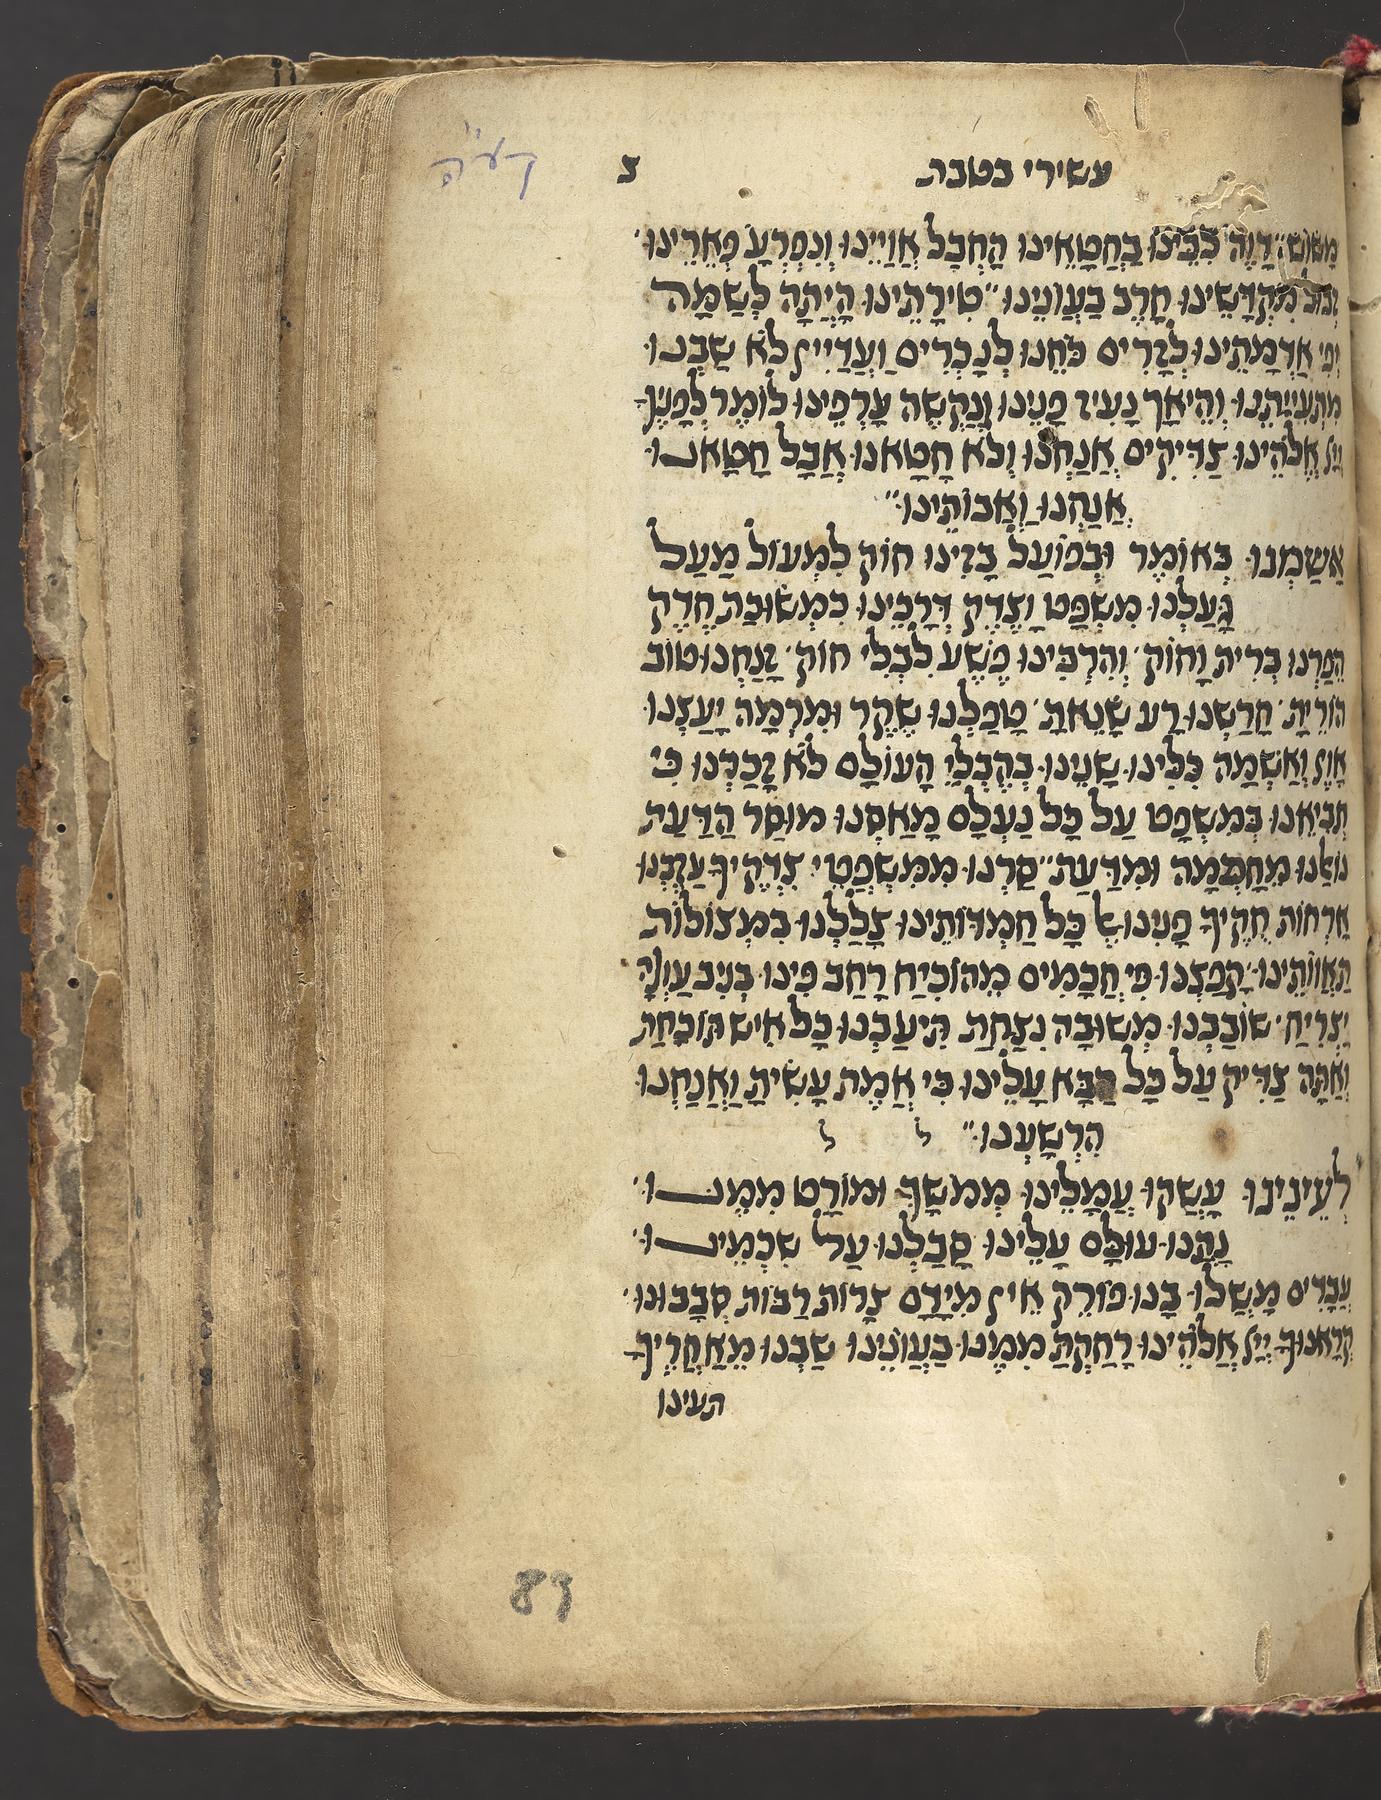 קע"ה
עשירי בטבת
מְשׂוֹשׂ דָוֶה לִבֵּינוּ בַּחֲטָאֵינוּ הָחְבַל אֲוַיֵּינוּ וְנִפְרְעַ פְּאֵרֵינוּ
זבול מִקְדָּשֵׁינוּ חָרֵב בַּעֲוֹנֵינוּ טִירָתֵינוּ הָיְתָה לְשַׁמָּה
יפי אַדְמָתֵינוּ לְזָרִים כֹּחֵנוּ לְנָכְרִים וַעֲדַיִין לֹא שַׁבְנוּ
מִתְּעִיָּתֵנוּ וְהֵיאַךְ נָעִיז פָּנֵינוּ וְנַקְשֶׁה עָרְפֵּינוּ לוֹמַר לְפָנֶיךָ
ייי אֱלֹהֵינוּ צַדִּיקִים אֲנַחְנוּ וְלֹא חָטָאנוּ אֲבָל חָטָאנוּ
אֲנַחְנוּ וַאֲבוֹתֵינוּ
אָשַׁמְנוּ בְּאוֹמֶר וּבְפוֹעַל בָּזִינוּ חוֹק לִמְעוֹל מַעַל
גָּעַלְנוּ מִשְׁפָּט וָצֶדֶק דְּרָכֵינוּ כִּמְשׂוּכַת חֶדֶק
הֵפַרְנוּ בְּרִית וָחוֹק וְהִרְבִּינוּ פֶשַׁע לִבְלִי חוֹק זָנַחְנוּ טוֹב
הוֹרֵיתָ חָרַשְׁנוּ רָע שָׂנֵאתָ טָפַלְנוּ שֶׁקֶר וּמִרְמָה יָעַצְנוּ
אָוֶן וְאַשְׁמָה כִּלִּינוּ שָׁנֵינוּ בְּהֶבְלֵי הָעוֹלָם לֹא זָכַרְנוּ כִּי
תְבִיאֵנוּ בְּמִשְׁפָּט עַל כָּל נַעְלָם מָאַסְנוּ מוּסַר הַדַּעַת
מֵחָכְמָה וּמִדַּעַת סַרְנוּ מִמִּשְׁפְּטֵי צִדְקֶיךָ עָזַבְנוּ
אָרְחוֹת חֻקֶּיךָ פָּנִינוּ אֶל כָּל חַמְדּוֹתֵינוּ צָלַלְנוּ בִּמְצוֹלוֹת
תַּאֲוֹותֵינוּ קָפַצְנוּ פִּי חֲכָמִים מֵהוֹכִיחַ רָחַב פִּינוּ
יַצְרִיחַ שׁוֹבַבְנוּ מְשׁוּבָה נִצַּחַת תִּיעַבְנוּ כָּל אִישׁ תּוֹכַחַת
וְאַתָּה צַדִּיק עַל כָּל הַבָּא עָלֵינוּ כִּי אֱמֶת עָשִׂיתָ וַאֲנַחְנוּ
הִרְשָׁעְנוּ
לְעֵינֵינוּ עָשְׁקוּ עֲמָלֵינוּ מְמֻשָּׁךְ וּמוֹרָט מִמֶּנּוּ
נָתְנוּ עוּלָּם עָלֵינוּ סָבַלְנוּ עַל שִׁכְמֵינוּ
עֲבָדִים מָשְׁלוּ בָנוּ פּוֹרֵק אֵין מִיָּדָם צָרוֹת רַבּוֹת סְבָבוּנוּ
קְרָאנוּךָ ייי אֱלֹהֵינוּ רָחַקְתָּ מִמֶּנּוּ בַּעֲוֹנֵינוּ שַׁבְנוּ מֵאַחֲרֶיךָ
תעינו
89